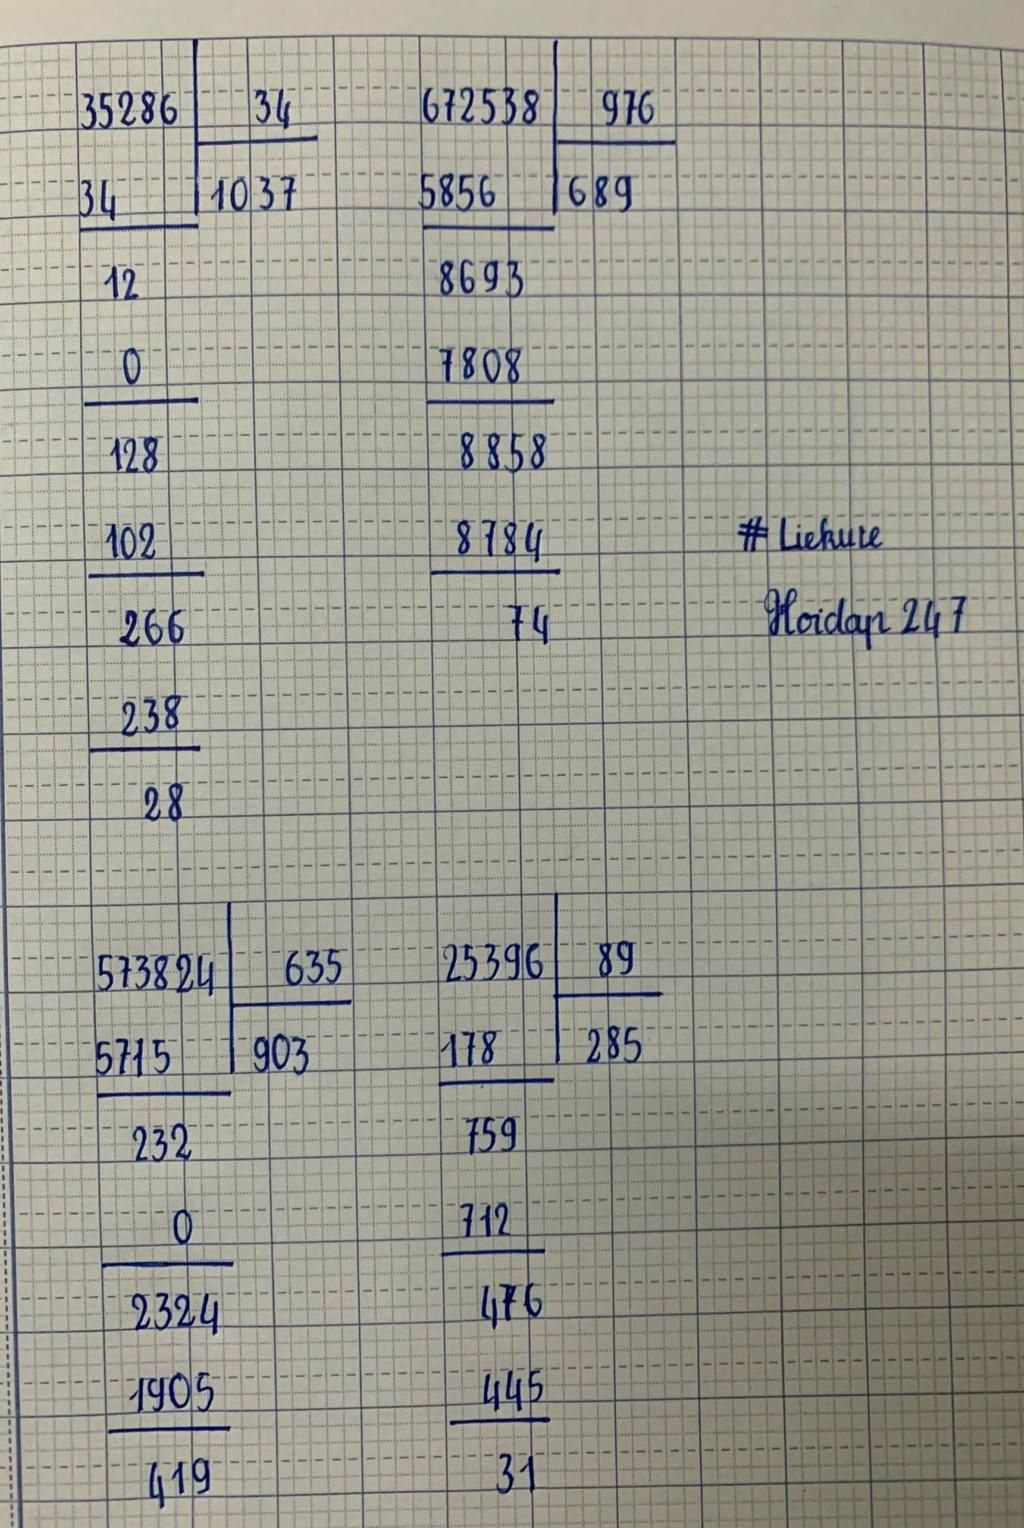 35286 34
34 1037
12
0
128
102
266
238
28
672538 976
5856 689
8693
7808
8858
8784
74
# Liekute
Hoidap 247
573824 635
5715 903
232
0
2324
1905
419
25396 89
178 285
759
712
476
445
31